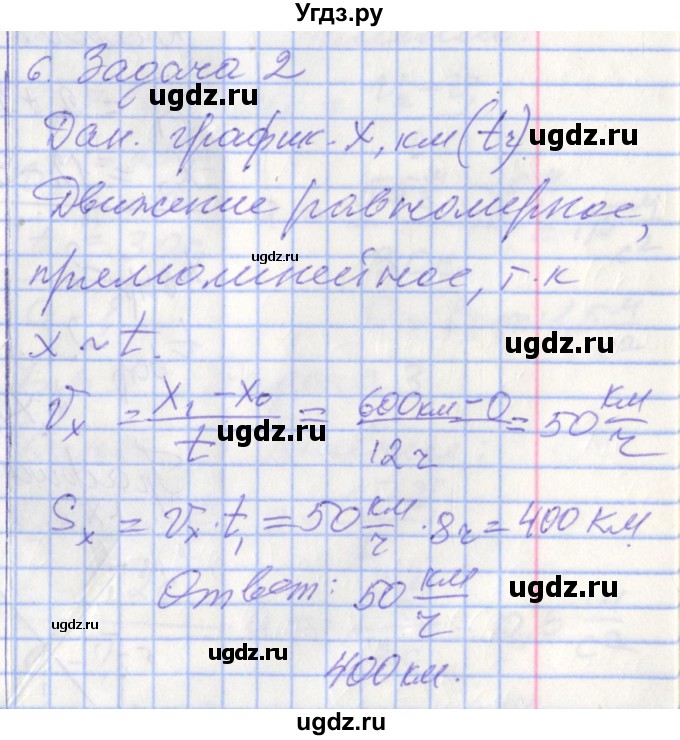 Угдз.ру
6. Задача 2
ugdz.ru
Дан. график - x, км (t, ч)
ugdz.ru
Движение равномерное,
ugdz.ru
прямолинейное, т.к
x ~ t.
ugdz.ru
Vx = (x₁ - x₀)/t = (600км - 0)/12ч = 50 км/ч
ugdz.ru
Sx = Vx · t₁ = 50 км/ч · 8ч = 400 км
Ответ: 50 км/ч
ugdz.ru
ugdz.ru
ugdz.ru
400 км.
ugdz.ru